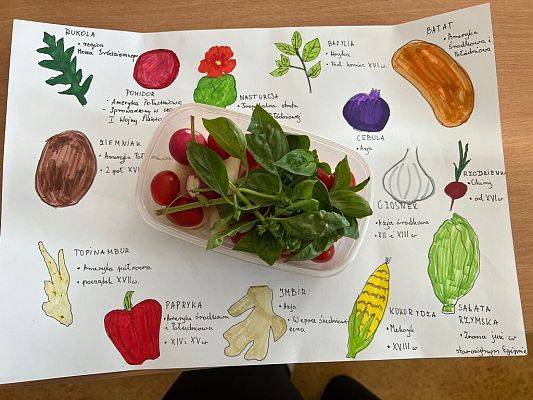 RUKOLA
• region
Morza Śródziemnego
POMIDOR
• Ameryka Południowa
I Wojny
NASTURCJA
BAZYLIA
• Afryka
• Pod koniec XVI w.
BATAT
• Ameryka
Środkowa i
Południowa
CEBULA
• Azja
ZIEMNIAK
• Ameryka
CZOSNEK
• Azja środkowa
• XII i XIII w
• Chiny
• od XVI w
TOPINAMBUR
• Ameryka północna
• początek XVII w.
PAPRYKA
• Ameryka Środkowa
i Południowa
• XIV i XV w
IMBIR
• Azja
KUKURYDZA
• Meksyk
• XVIII w
SAŁATA
RZYMSKA
• Znana już w
starożytnym Egipcie